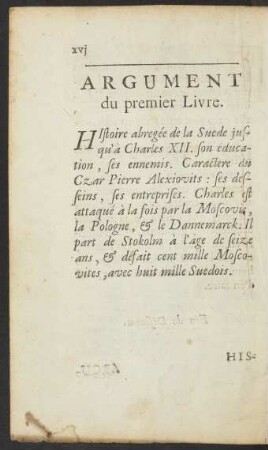 xvj
ARGUMENT
du premier Livre.
HIstoire abregée de la Suede jus-
qu'à Charles XII. son éduca-
tion, ses ennemis. Caractere du
Czar Pierre Alexiovits : ses des-
seins, ses entreprises. Charles est
attaqué à la fois par la Moscovie,
la Pologne, & le Dannemarck. Il
part de Stokolm à l'âge de seize
ans, & défait cent mille Mosco-
vites, avec huit mille Suedois.
HIS-